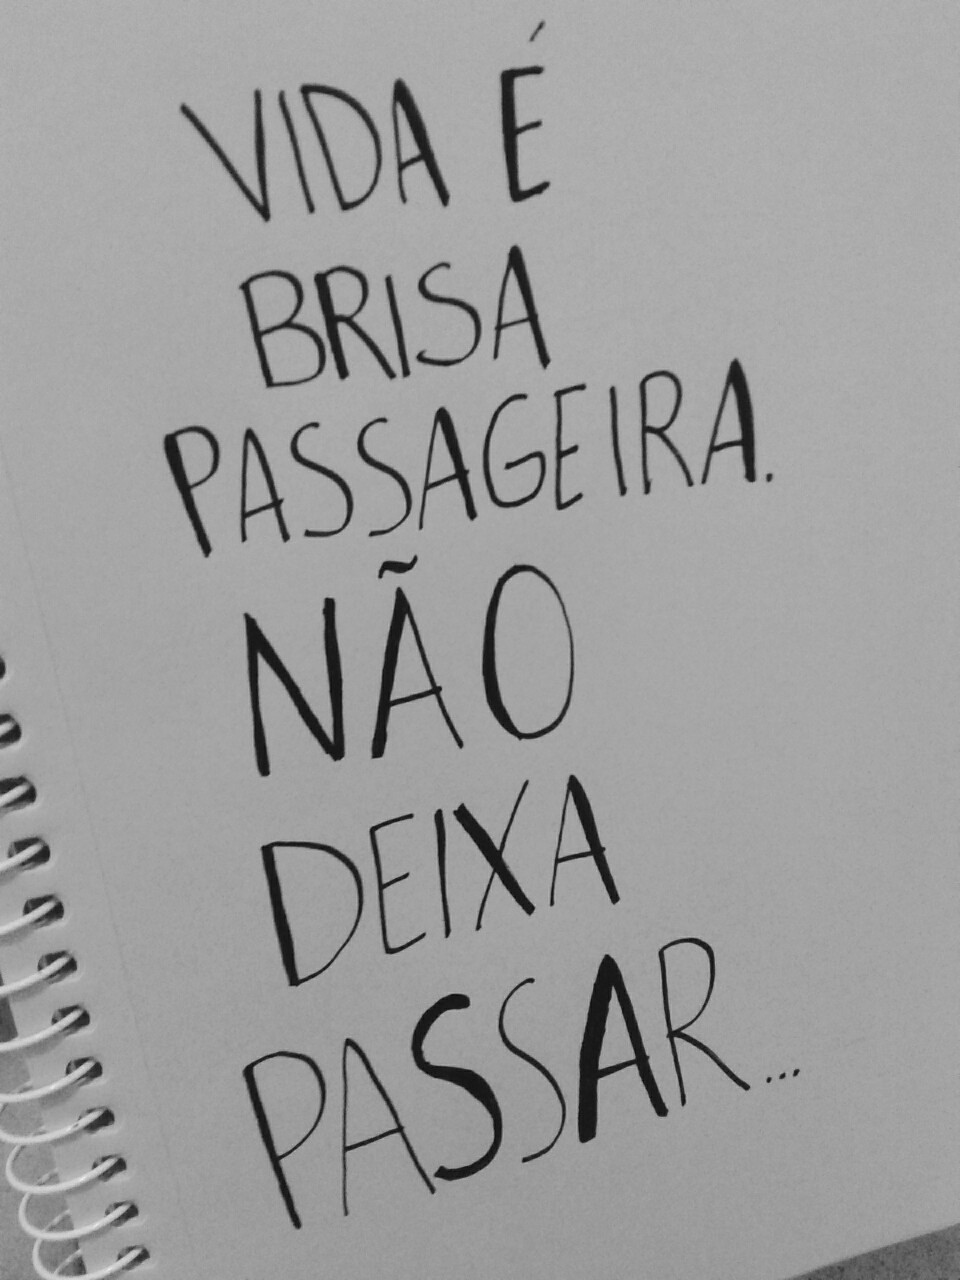 VIDA É
BRISA
PASSAGEIRA.
NÃO
DEIXA
PASSAR...